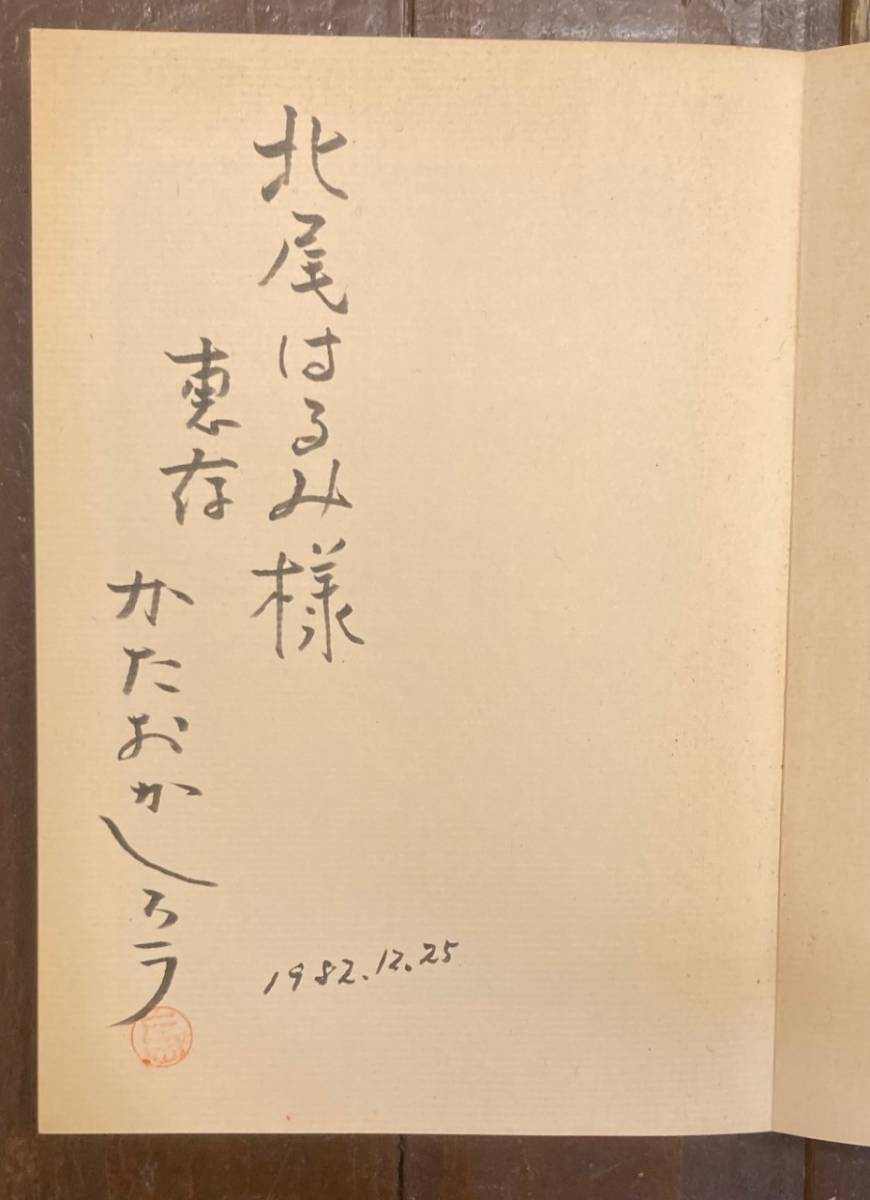 北尾はるみ様
恵存
かたおかしろう
1982.12.25